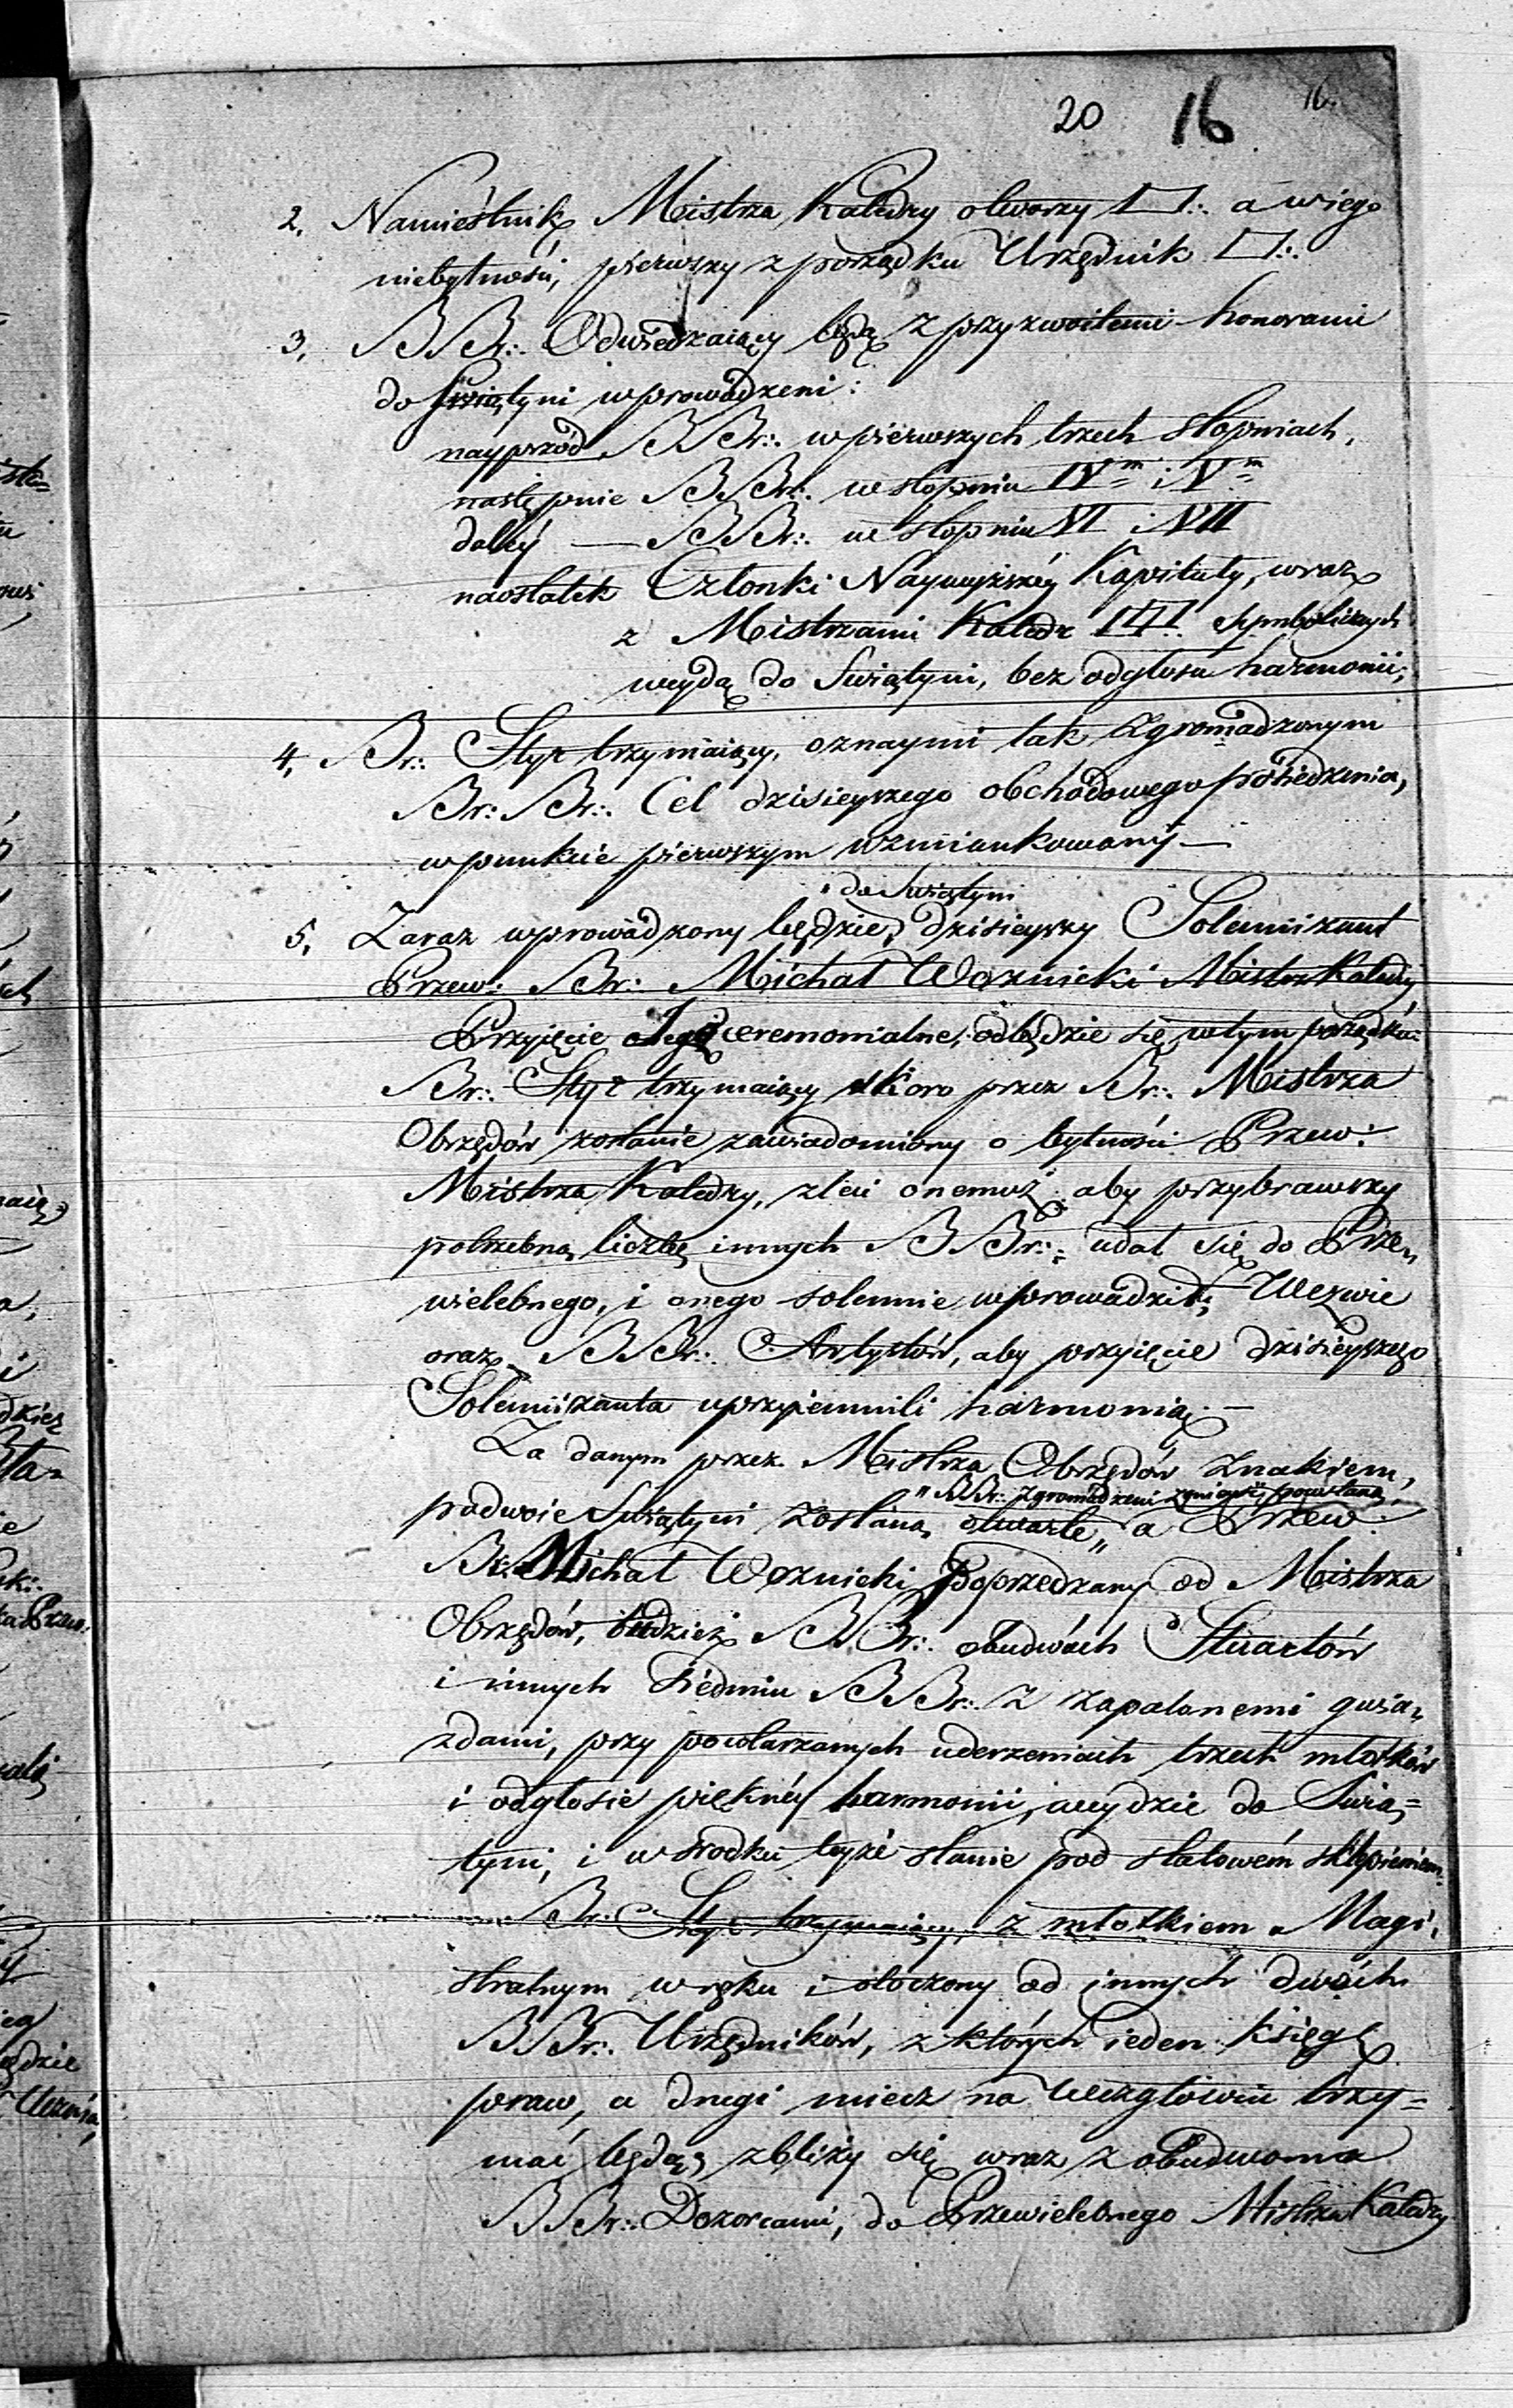 20 16 16.
2. Namiestnik Mistrza Katedry otworzy □.: a w iego
niebytności, pierwszy z porządku Urzędnik □.:
3. BBr.: Odwiedzaiący będą z przyzwoitemi honorami
do Swiątyni wprowadzeni:
nayprzód BBr.: w pierwszych trzech stopniach,
następnie BBr.: w stopniu IVm i Vm
daléy — BBr.: w stopniu VI i VII
naostatek Członki Naywyższéy Kapituły, wraz
z Mistrzami Katedr Symbolicznych
weydą do Swiątyni, bez odgłosu harmonii;
4. Br.: Styr trzymaiący, oznaymi tak zgromadzonym
Br.: Br.: Cel dzisieyszego obchodowego posiedzenia,
w punkcie pierwszym wzmiankowany —
do Swiątyni
5. Zaraz wprowadzony będzie, dzisieyszy Solennizant
Przew: Br.: Michał Woznicki Mistrz Katedry
Przyięcie Jego ceremonialne, odbędzie się w tym porządku:
Br.: Styr trzymaiący skoro przez Br.: Mistrza
Obrzędów zostanie zawiadomiony o bytności Przew:
Mistrza Katedry, zleci onemuż aby przybrawszy
potrzebną liczbę innych BBr.: udał się do Prze„
wielebnego, i onego solennie wprowadził; Wezwie
oraz BBr.: Artystów, aby przyięcie dzisieyszego
Solennizanta uprzyiemnili harmonią. —
Za danym przez Mistrza Obrzędów znakiem,
„BBr.: zgromadzeni powstaną,
podwoie Swiątyni zostaną otwarte „ a Przew:
Br.: Michał Woznicki Poprzedzany od Mistrza
Obrzędów, tudzież BBr.: obudwóch Stuartów
i innych siedmiu BBr.: z zapalonemi gwia„
zdami, przy powtarzanych uderzeniach trzech młotków
i odgłosie piękney harmonii, weydzie do Swią=
tyni, i w srodku teyże stanie pod stalowém sklepieniem.
Br.: Styr trzymaiący, z młotkiem Magi„
stralnym w ręku i otoczony od innych dwóch
BBr.: Urzędników, z których ieden Księgę
praw, a drugi miecz na Wezgłowiu trzy=
mać będą, zbliży się wraz z obudwoma
BBr.: Dozorcami, do Przewielebnego Mistrza Katedry